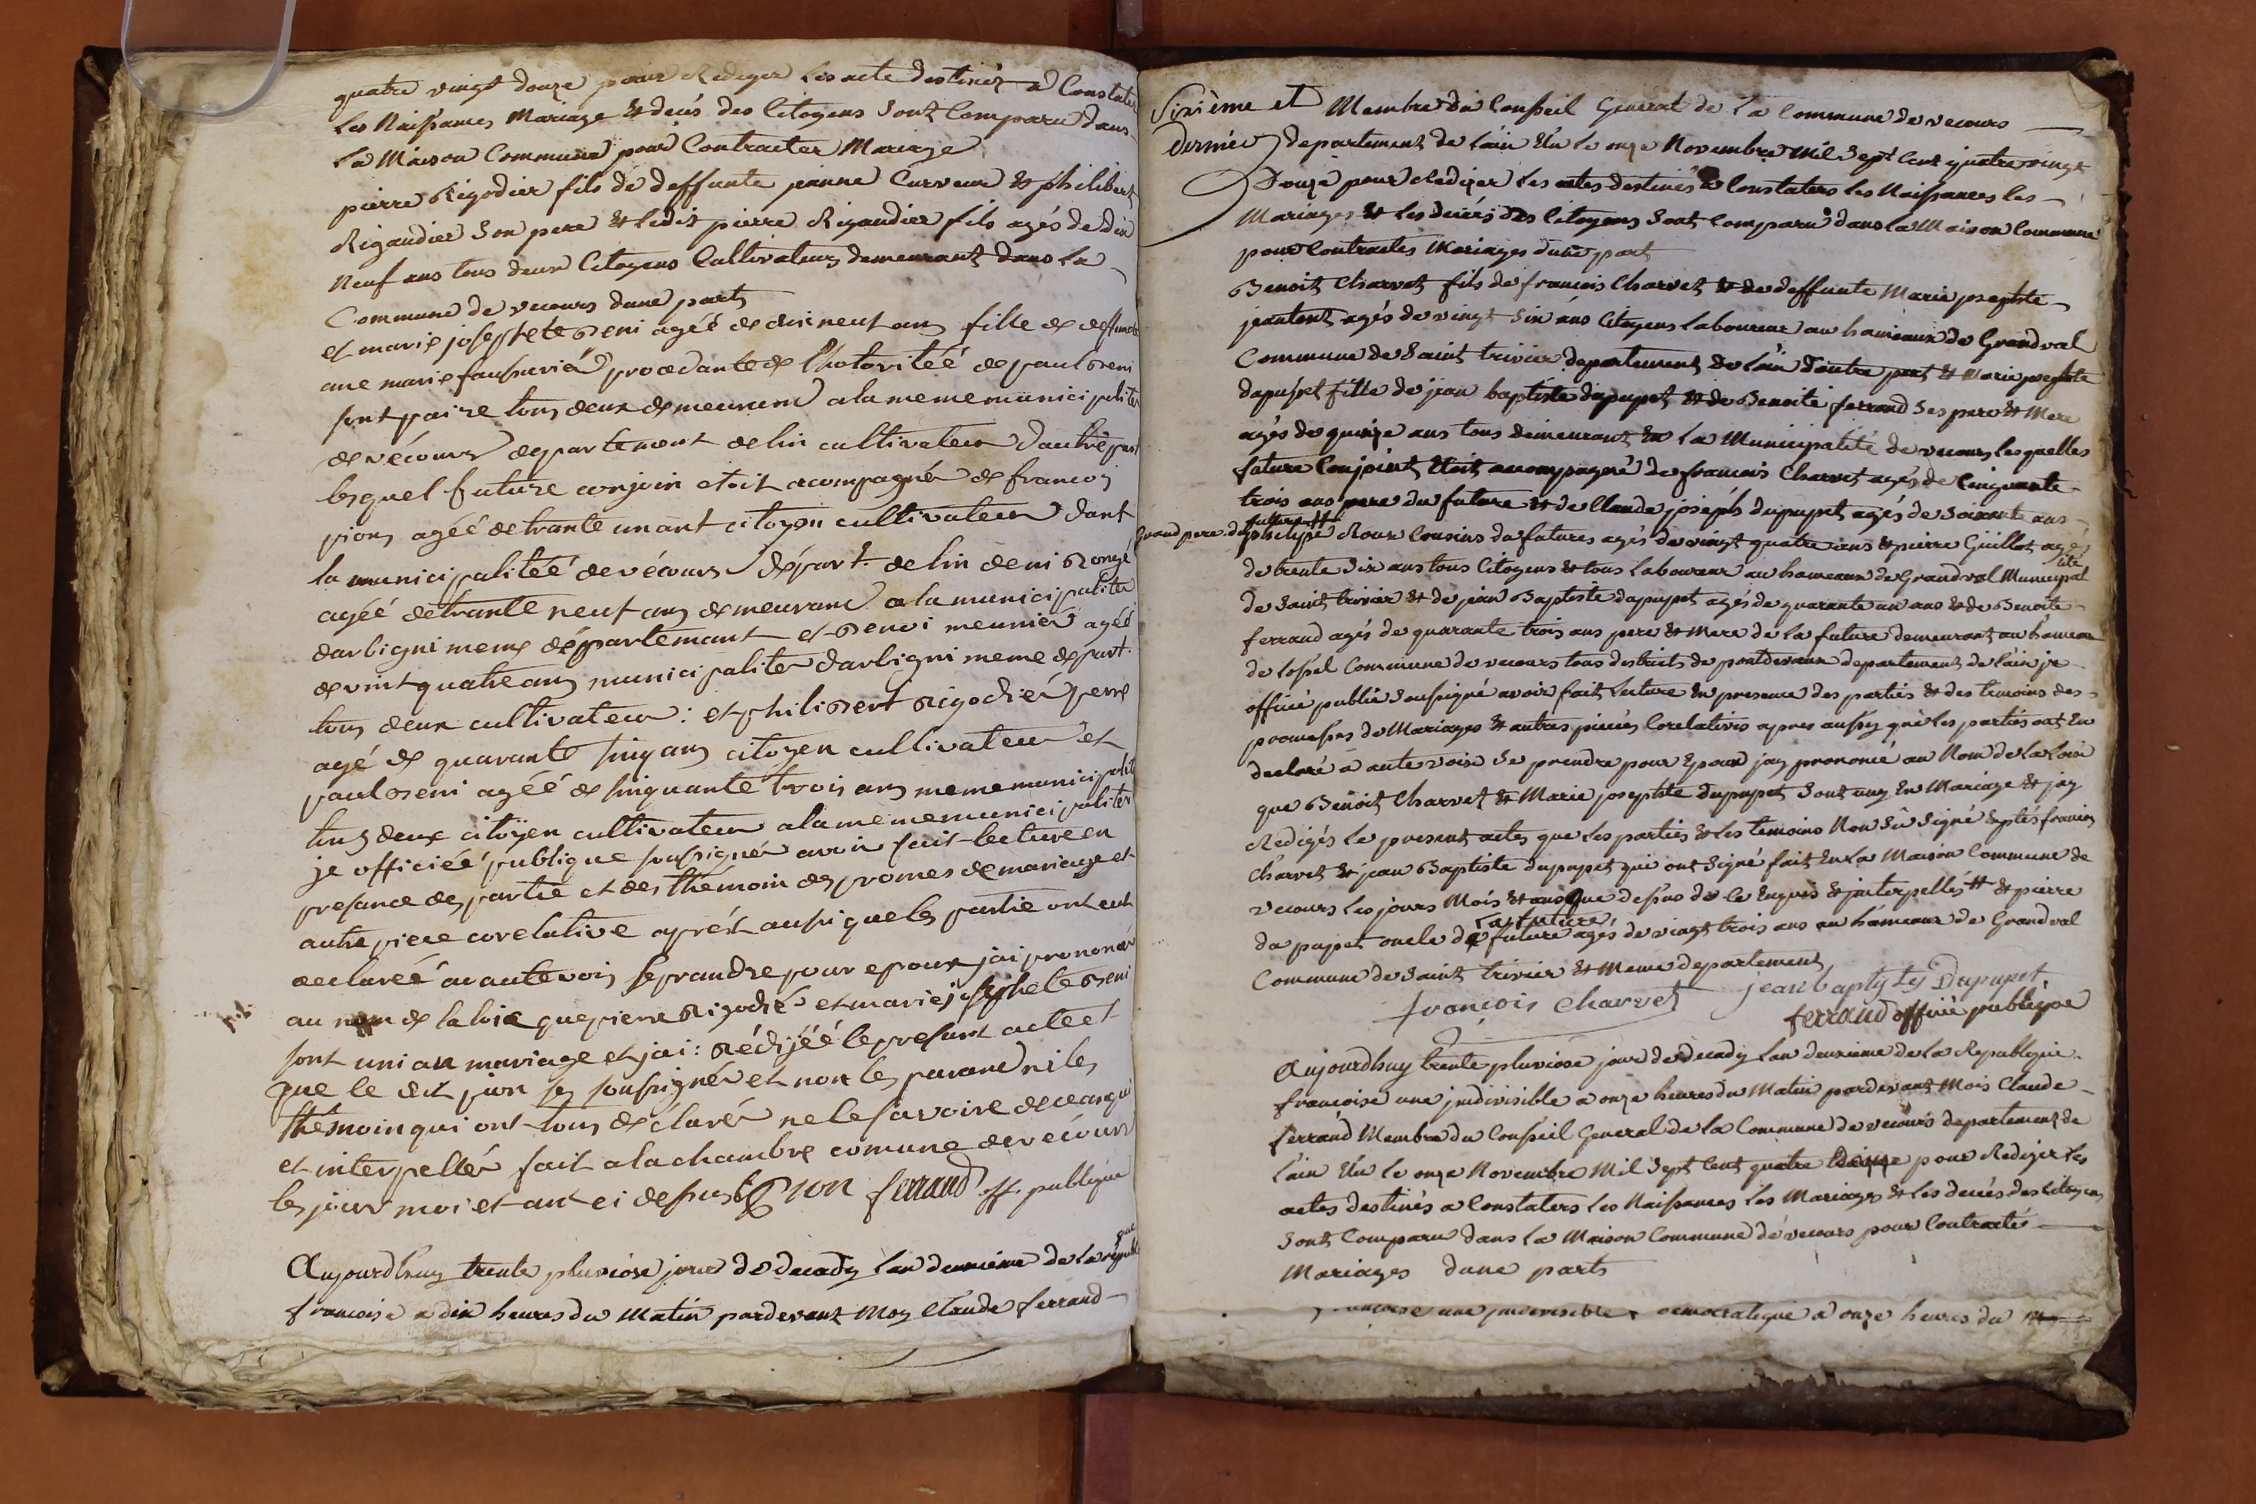 quatre vingt douze pour Rediger les acte destinéz a Constater
les Naissances Mariage & decés des Citoyens sont Comparu dans
la Maison Commune pour Contracter Mariage
pierre Rigodier fils de deffunte jeanne Curveur & philibert
Rigaudier son pere & ledit pierre Rigaudier fils agés de dix
neuf ans tous deux Citoyens Cultivateurs demeurant dans la
Commune de vecours dune parts
et marie josephete Beni agéé de dixneuf ans fille de deffunte
ane marie procedante de l'hotoritéé de paul Beni
sont paire tous deux demeurand a la meme municipaliter
de vécours departement de lin cultivateur dautre part
lesquel future conjoin etoit acompagnér de francois
pion agéé de trante un ant citoyen cultivateur dant
la municipalitéé de vécours départ. de lin deni Rongé
agéé de trante neuf ans demeurand a la municipaliter
darbigni meme départemant et Benoi meunier agéé
de vint quatre ans municipaliter darbigni meme depart.
tous deux cultivateur : et philibert Rigodiér perre
agé de quarante sinq ans citoyen cultivateur et
paul Beni agéé de sinquante trois ans meme municipalit
tous deux citoyen cultivateur a la meme municipaliter
je officiéé publique soussignér avoir fait lecture en
presance des partie et des thémoin des promes de mariage et
autre piece corelative aprést aussi que les partie ont eut
declaréé a aute vois se prandre pour epoux jai prononcér
au nom de la loix que pierre Rigodié et marie josephete Beni
sont uni an mariage et jai : Rédijéé le present acte et
que le dit pion sez soussignér et non les parand ni les
thémoin qui ont tous déclarér ne le savoire de ce anqui
et interpellér fait a la chambre comune de vécours
les jour moi et ant ci dessus Pion ferrand off. publique
Aujourdhuy trente pluviose jour de decady lan deuxieme de la republique
francoise a dix heures du Matin pardevant Moy Claude ferrand
Sixième et Membre du Conseil General de la Commune de vecours
dernier departement de lain Elu le onze Novembre Mil Sept Cent quatre vingt
Douze pour Rediger les actes destinés a Constaters les Naissances les
Mariages & les decés des Citoyens sont Comparu dans la Maison Commune
pour Contractes Mariages dune part
Benoit Charvet fils de francois Charvet & de deffunte Marie josephte
agés de vingt six ans Citoyens laboureur au hameaux de Grandval
Commune de Saint trivier departement de lain dautre part & Marie josephte
dupupet fille de jean baptiste dupupet & de Benoite ferrand ses pere & Mere
agés de quinze ans tous demeurant en la Municipalité de vecours lesquelles
future Conjoint etoit accompagné de francois Charvet agés de Cinquante
trois ans pere du future & de Claude joséph dupupet agés de soixante ans
Grand pere de future # philipe Roux Cousins du futures agés de vingt quatre ans & pierre Guillot agés
de trente six ans tous Citoyens & tous laboureur au hameaux de Grandval Municipalité
de Saint trivier & de jean Baptiste dupupet agés de quarante un ans & de Benoite
ferrand agés de quarante trois ans pere & Mere de la future demeurant au hameau
de Commune de vecours tous destricts de pontdevaux departement de lain je
officié publié soussigné avoir fait lecture en presence des parties & des temoins des
promesses de Mariages & autres pieces Corelatives apres aussy que les parties ont Eu
declaré a aute voix se prendre pour Epoux jay prononcé au Nom de la loix
que Benoit Charvet & Marie josephte dupupet sont uny en Mariage & jay
Redigés le present actes que les parties & les temoins Non sû signé Exptés francois
Charvet & jean Baptiste dupupet qui ont signé fait en la Maison Commune de
vecours les jours Mois & ans que dessus de ce Enquis & interpellés # & pierre
du pupet oncle de la future agés de vingt trois ans au hameaux de Grandval
Commune de Saint trivier & Meme departement
françois charvet jean baptiste Dupupet
ferrand officié publique
Aujourdhuy trente pluviose jour de decady lan deuxieme de la Republique
francoise une jndivisible a onze heures du Matin pardevant Mois Claude
ferrand Membre du Conseil General de la Commune de vecours departement de
lain Elu le onze Novembre Mil Sept Cent quatre pour Rediger les
actes destinés a Constaters les Naissances les Mariages & les decés des Citoyens
sont Comparu dans la Maison Commune de vecours pour Contractés
Mariages dune parts
francoise une jndivisible democratique a onze heures du